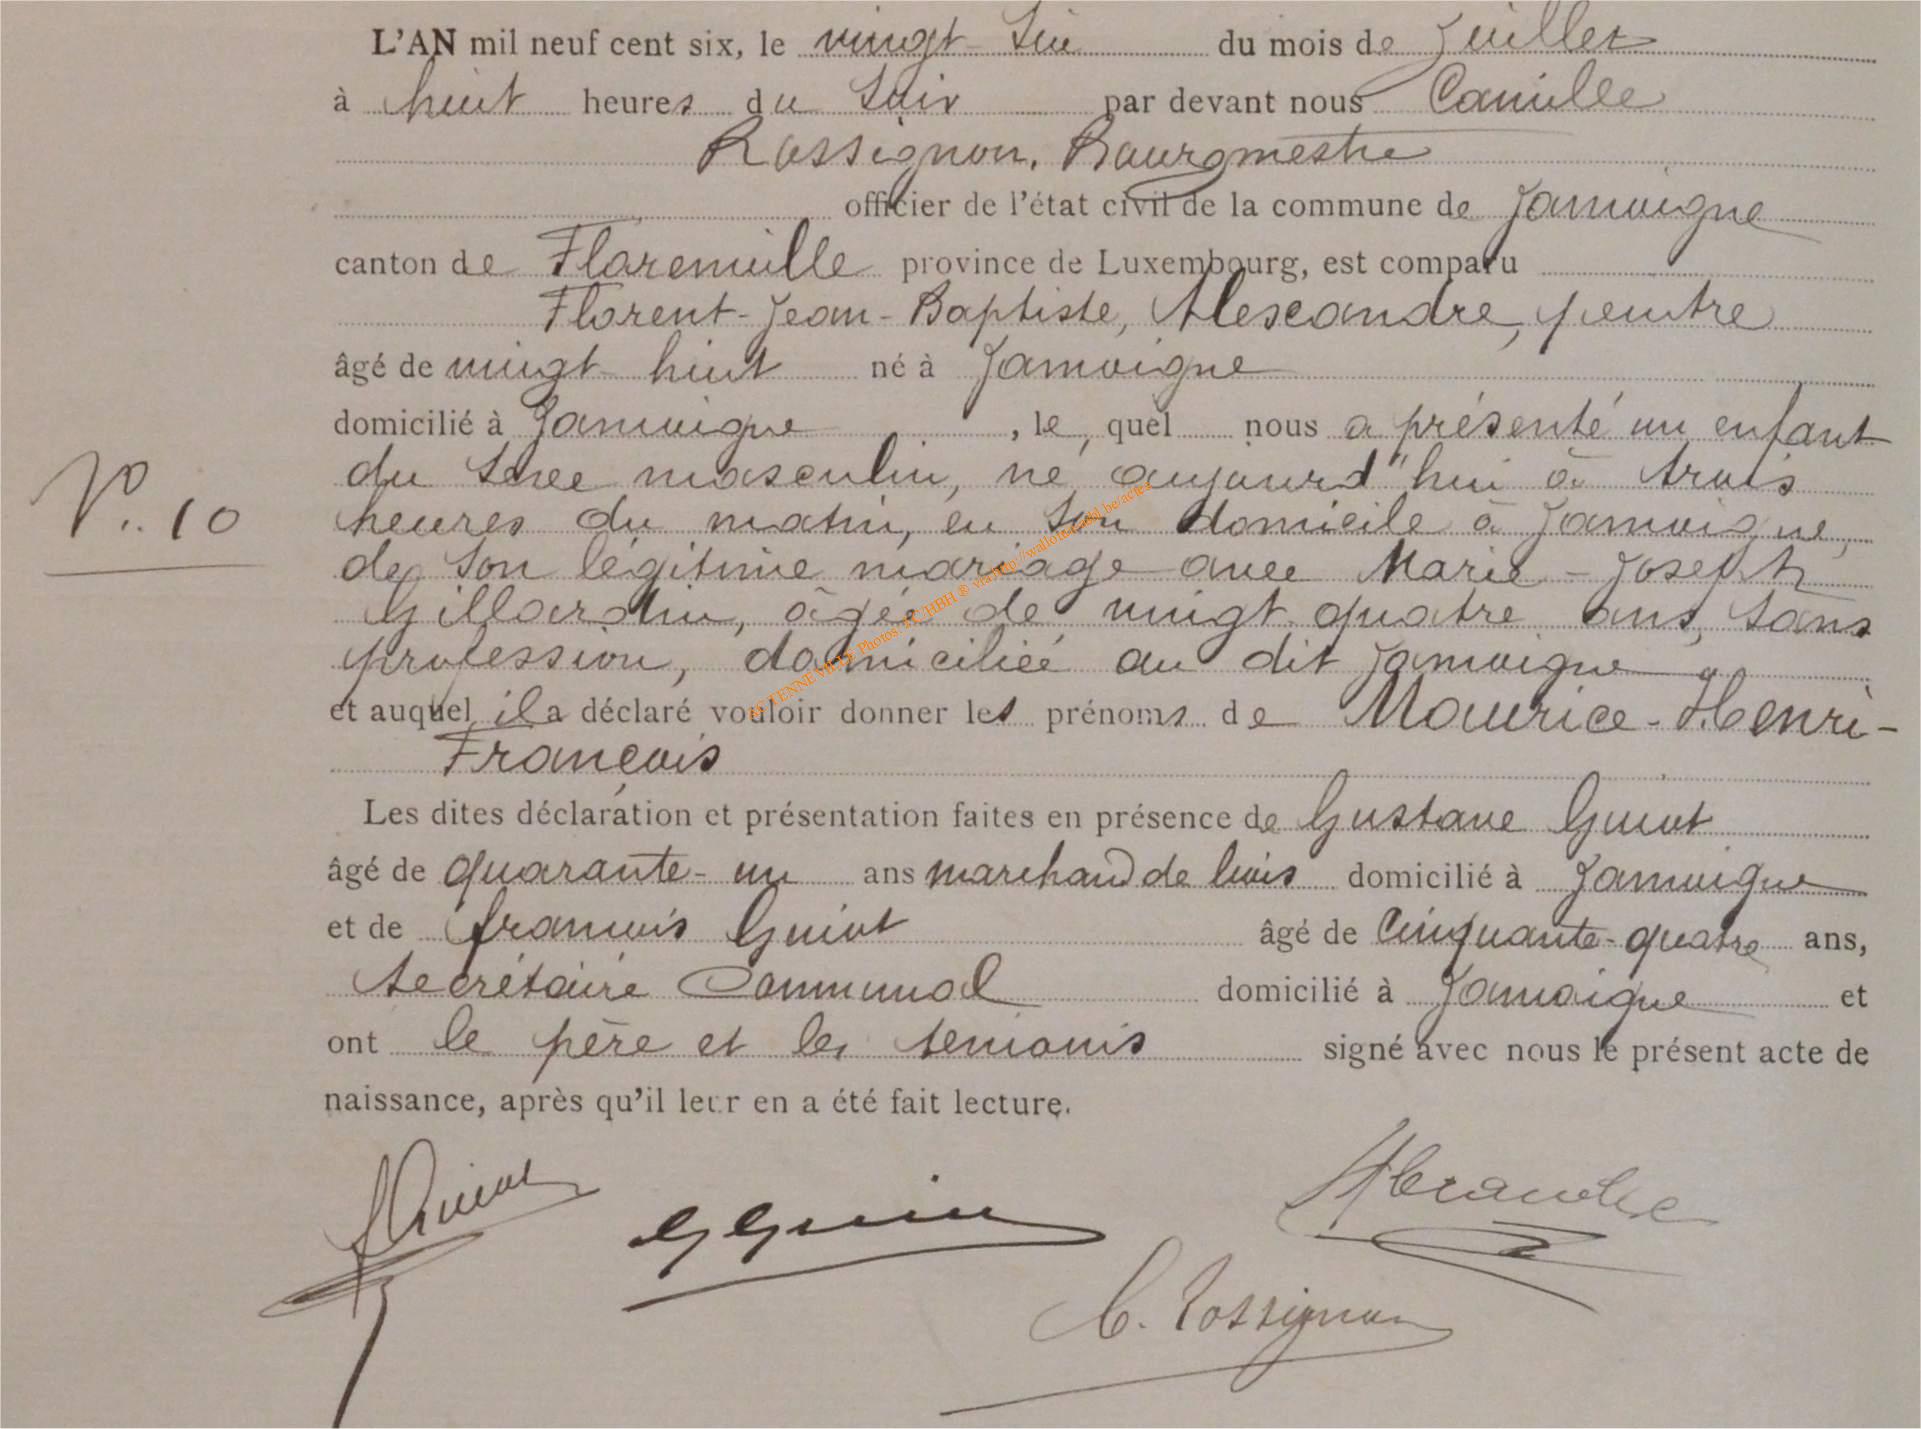 L'AN mil neuf cent six, le vingt-six du mois de Juillet
à huit heures du soir par devant nous Camille
Rossignon, Bourgmestre
officier de l'état civil de la commune de Jamoigne
canton de Florenville province de Luxembourg, est comparu
Florent-Jean-Baptiste, Alexandre, peintre
âgé de vingt-huit né à Jamoigne
domicilié à Jamoigne, lequel nous a présenté un enfant
du sexe masculin, né aujourd'hui à trois
N° 10
heures du matin, en son domicile à Jamoigne,
de son légitime mariage avec Marie-Joseph
Gillardin, âgée de vingt quatre ans, sans
profession, domiciliée au dit Jamoigne
et auquel il a déclaré vouloir donner les prénoms de Maurice-Henri-
François
Les dites déclaration et présentation faites en présence de Gustave Guiot
âgé de quarante-un ans marchand de bois domicilié à Jamoigne
et de François Guiot âgé de Cinquante-quatre ans,
secrétaire Communal domicilié à Jamoigne et
ont le père et les témoins signé avec nous le présent acte de
naissance, après qu'il leur en a été fait lecture.
Alexandre
C. Rossignon